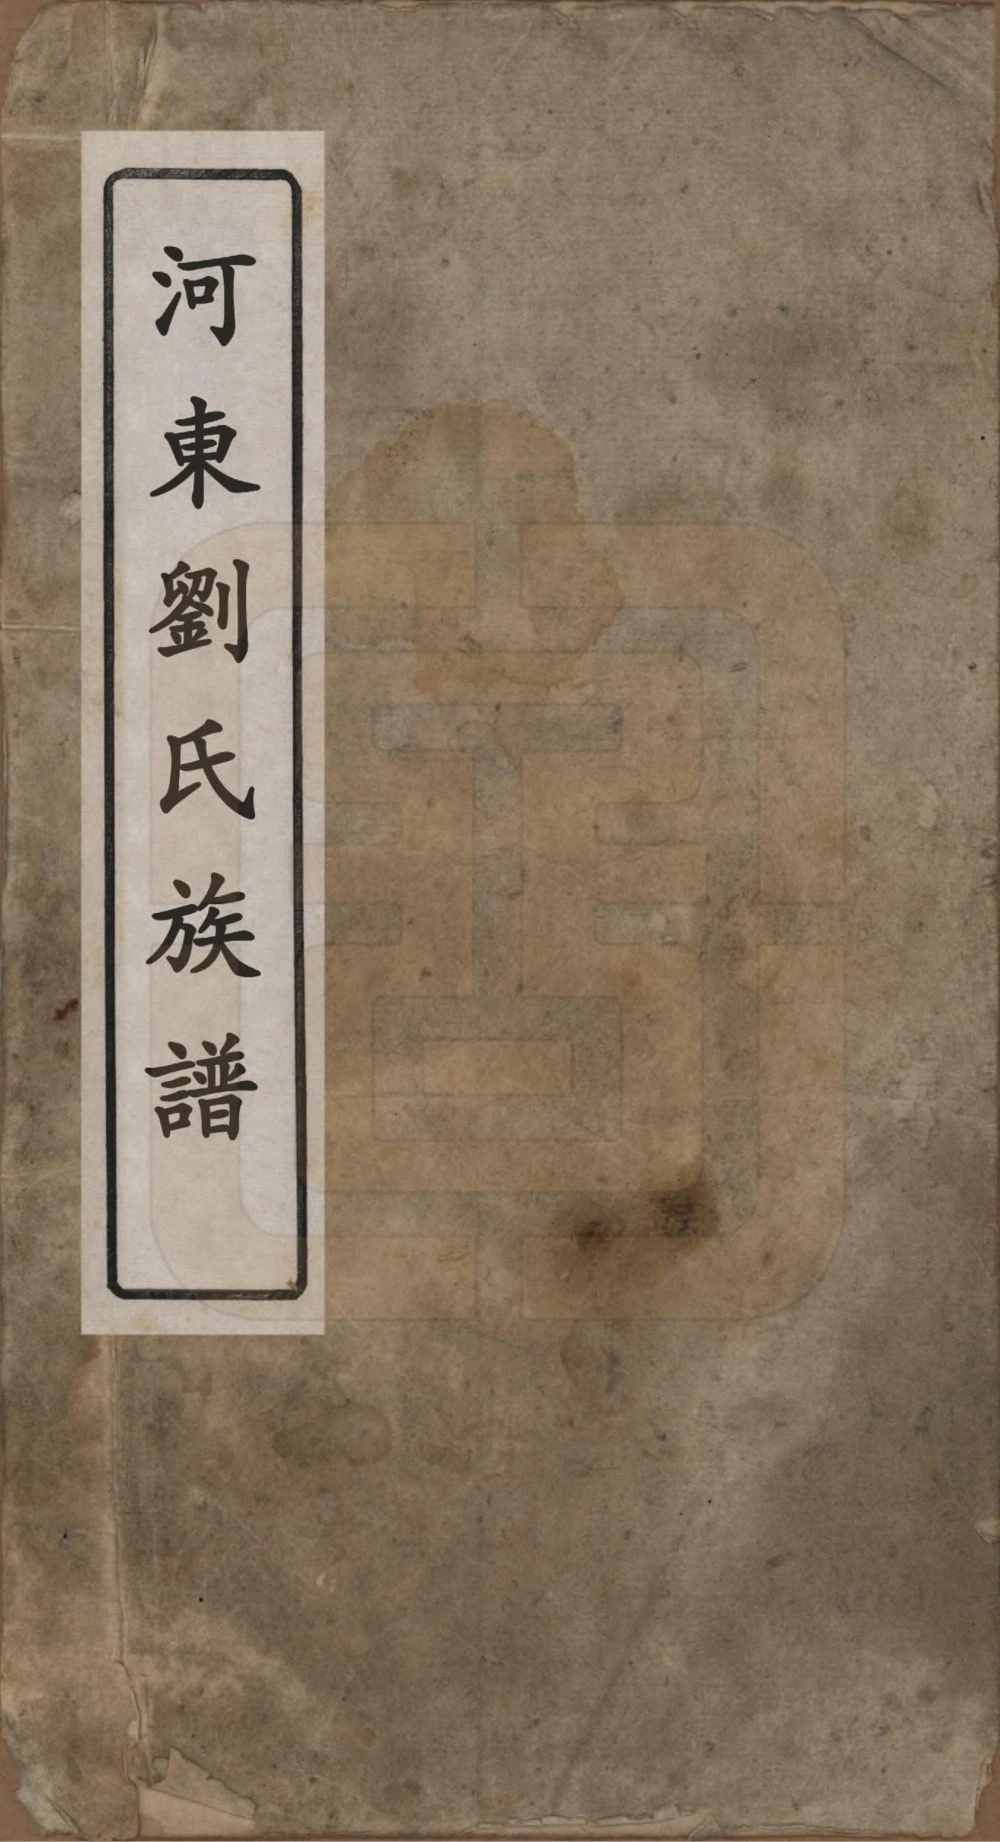 河東劉氏族譜